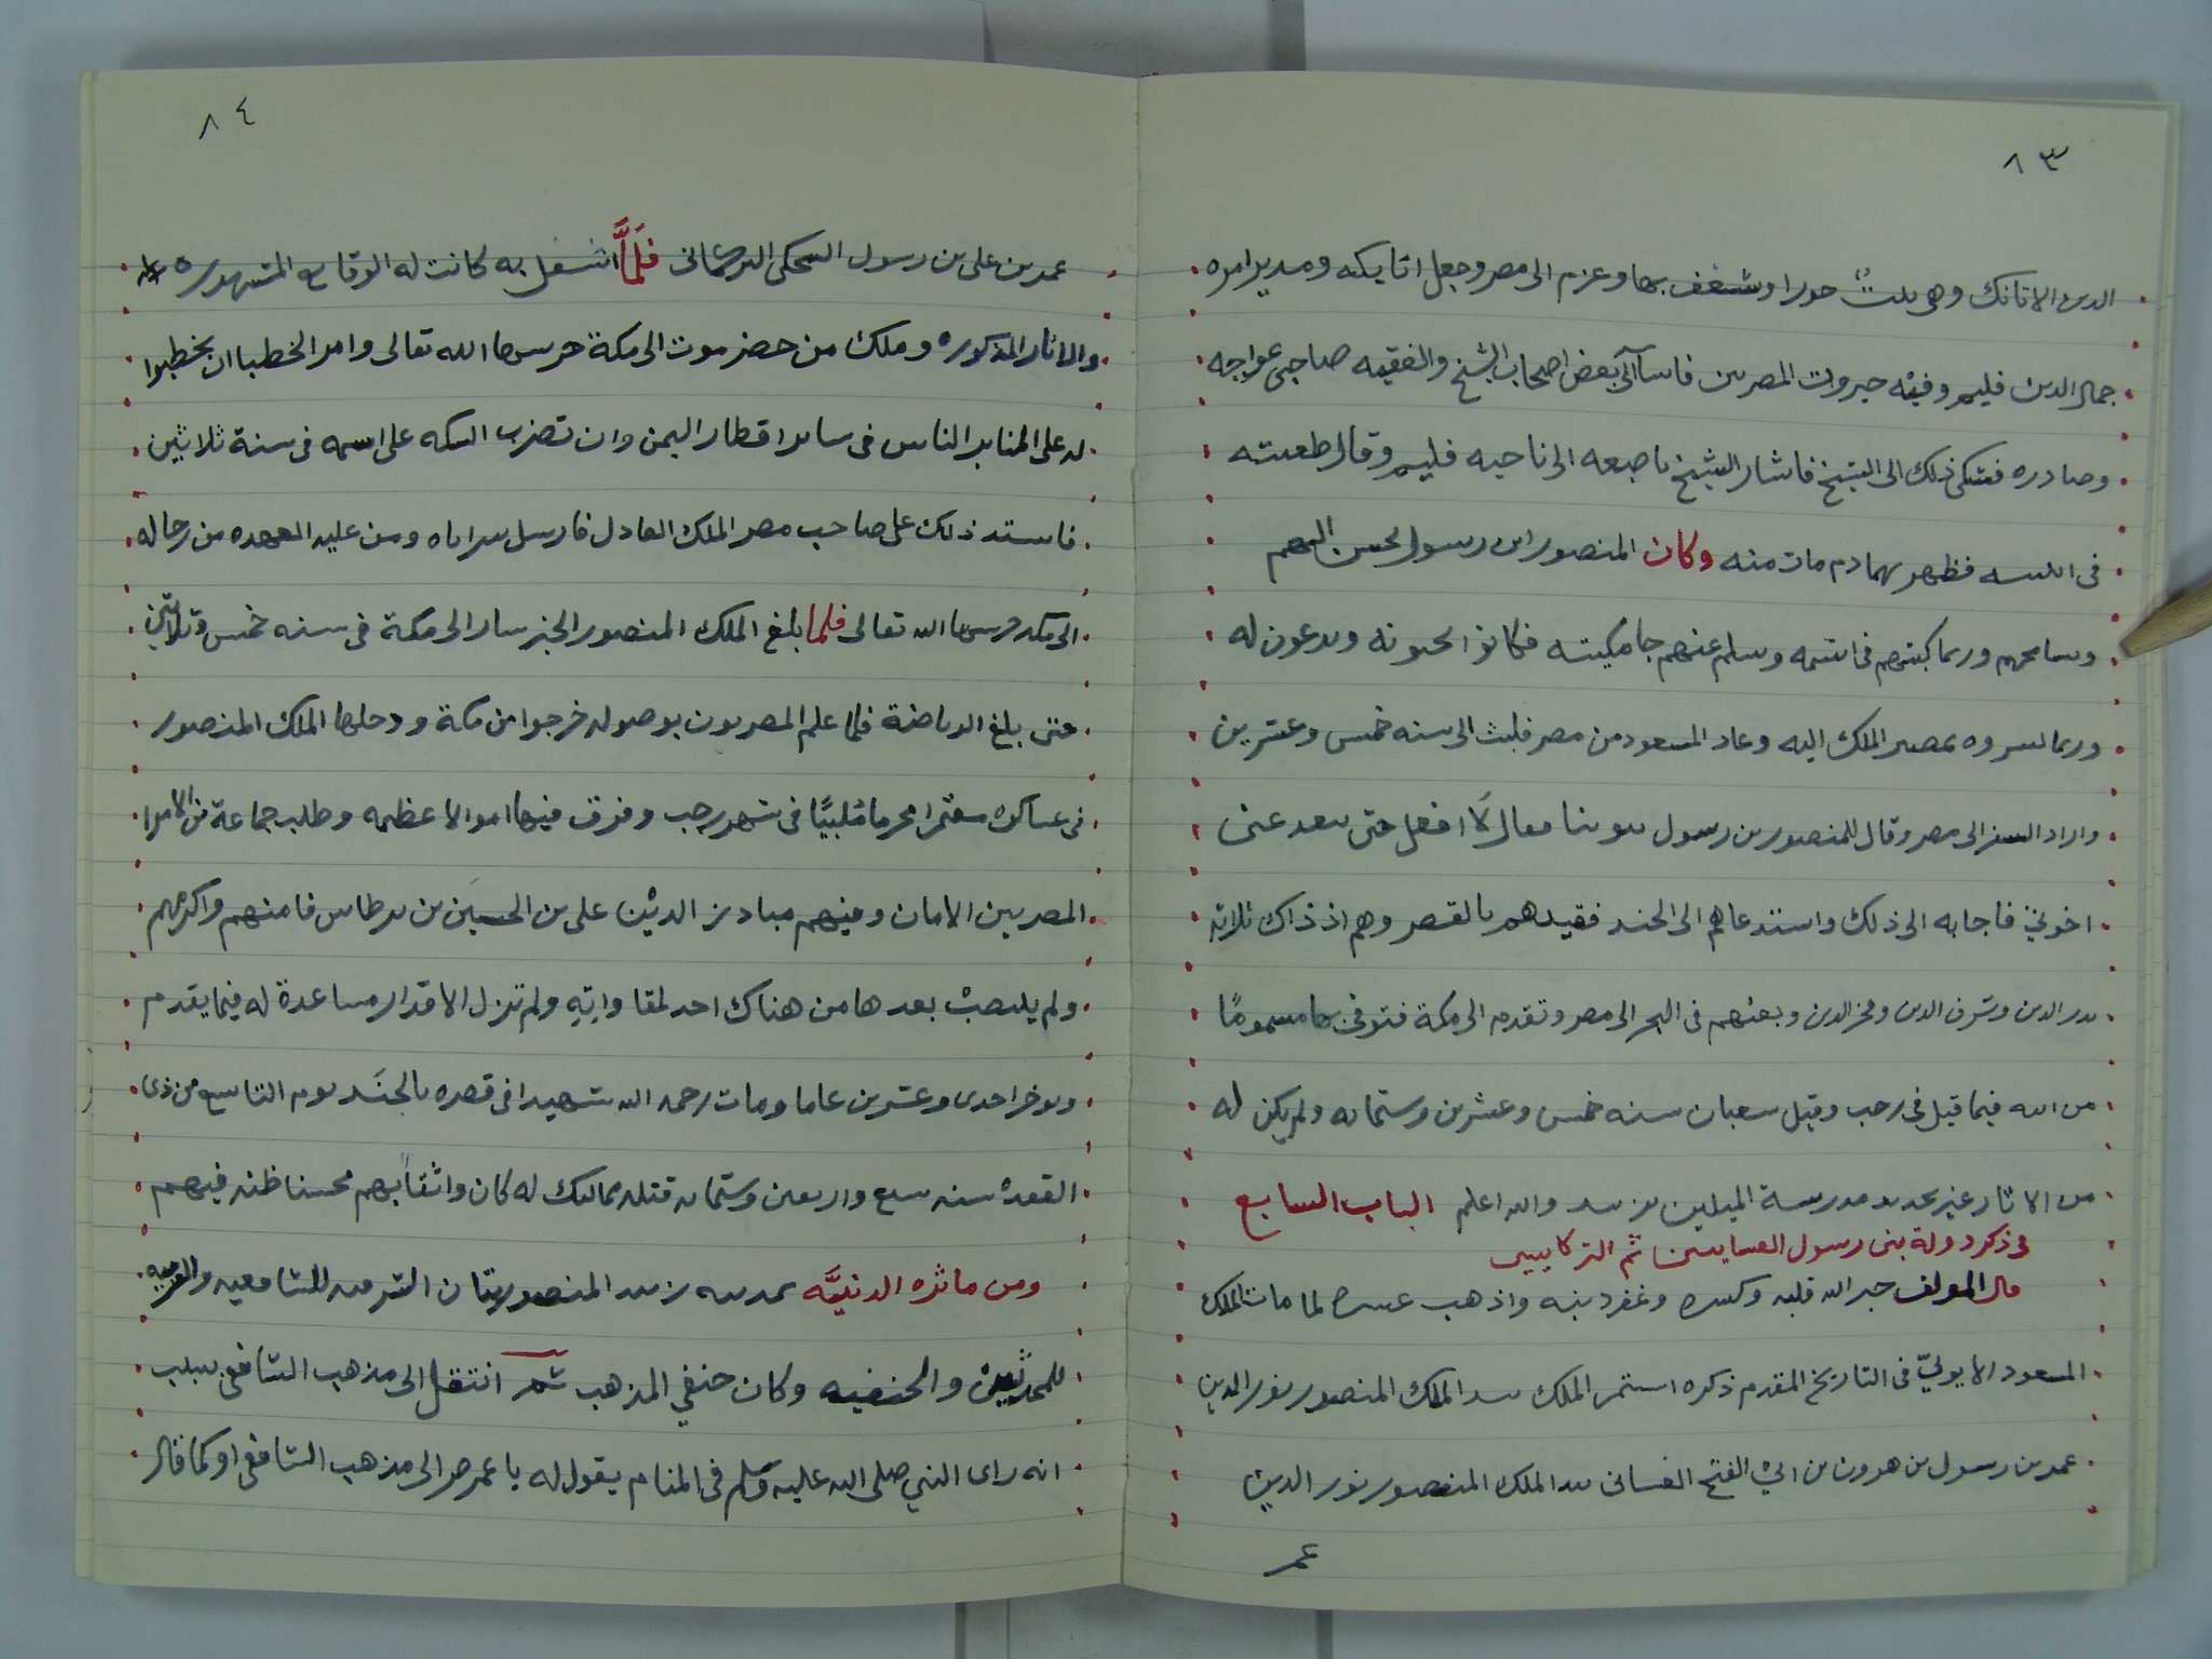 ٨٣
الدين الاتابك وهى بنت حورا وشغف بها وعزم الى مصر وجعل اتابكه ومدبر امره
جمال الدين فليم وفيه جبروت المصرين فاسا الى بعض اصحاب الشيخ والفقيه صاحبى عواجه
وصادره فشكى ذلك الى الشيخ فاشار الشيخ باصبعه الى ناحيه فليم وقال طعنته
فى فظهر بهما دم مات منه وكان المنصور ابن رسول يحسن اليهم
وسامحهم وربما وسلم عنهم جامكيته فكانوا يحبونه ويدعون له
وربما بمصير الملك اليه وعاد المسعود من مصر فلبث الى سنه خمس وعشرين
واراد السفر الى مصر وقال للمنصور بن رسول فقال لا افعل حتى تبعد عنى
اخوتي فاجابه الى ذلك واستدعاهم الى الجند فقيدهم بالقصر وهم اذ ذاك ثلاثة
بدر الدين وشرف الدين وفخر الدين وبعثهم فى البحر الى مصر وتقدم الى مكة فتوفى بها مسموما
من فيما قيل فى رجب وقيل شعبان سنه خمس وعشرين وستمائه ولم يكن له
من الاثار غير تجديد مدرسة الميلين بزبيد والله اعلم الباب السابع
فى ذكر دولة بنى رسول الغسانيين ثم التركمانيين
قال المولف جبر الله قلبه وكسره وغفر ذنبه واذهب عسره لما مات الملك
المسعود الايوبيّ فى التاريخ المقدم ذكره استمر الملك بيد الملك المنصور نور الدين
عمر بن رسول بن هرون بن ابي الفتح الغسانى بيد الملك المنصور نور الدين
عمر
٨٤
عمر بن على بن رسول التركمانى فلمَّا اشتغل به كانت له الوقايع المشهوره
والاثار المذكوره وملك من حضرموت الى مكة حرسها الله تعالى وامر الخطبا ان يخطبوا
له على المنابر الناس فى ساير اقطار اليمن وان تضرب السكه على اسمه فى سنة ثلاثين
فاستد ذلك على صاحب مصر الملك العادل فارسل سرايا ومن عليه العهده من رجاله
الى مكه حرسها الله تعالى فلما بلغ الملك المنصور الخبر سار الى مكة فى سنه خمس وثلاثين
حتى بلغ الرياضة فلما علم المصريون بوصوله خرجوا من مكة ودخلها الملك المنصور
فى عساكره معتمرا محرما مُلبيًا فى شهر رجب وفرق فيها اموالا عظيمه وطلب جماعة من الامرا
المصريين الامان ومنهم مبارز الدين على بن الحسين بن برطاس فامنهم واكرمهم
ولم ينتصب بعدها من هناك احد لمقاواته ولم تزل الاقدار مساعدة له فيما يقدم
ويوخر احدى وعشرين عاما ومات رحمه الله شهيدا فى قصره بالجَنَد يوم التاسع من ذى
القعدة سنه سبع واربعين وستمائه قتله مماليك له كان واثقا بهم محسنا ظنه فيهم
ومن ماثره الدنيَّه بمدينه زبيد المنصوريتان للشافعيه
للمحدثين والحنفيه وكان حنفي المذهب ثم انتقل الى مذهب الشافعى بسبب
انه راى النبي صلى الله عليه وسلم فى المنام يقول له يا عمر صر الى مذهب الشافعى او كما قال